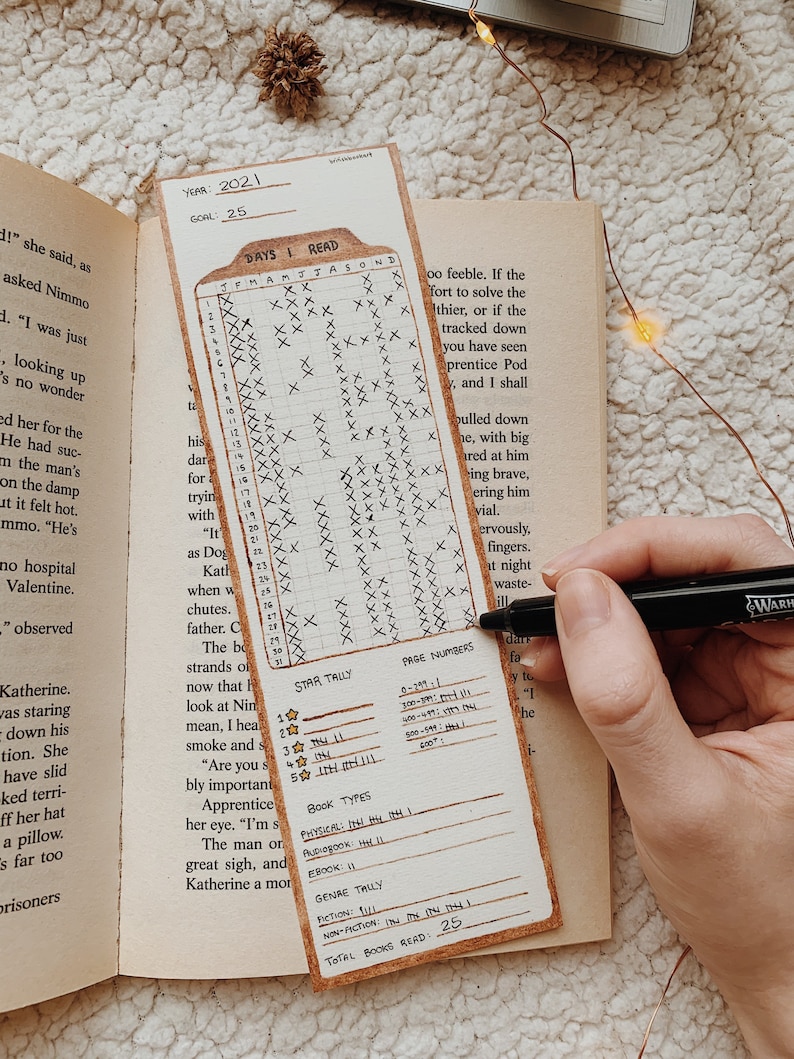 d!" she said, as
asked Nimmo
d. "I was just
, looking up
's no wonder
ed her for the
He had suc-
m the man's
on the damp
ut it felt hot.
mmo. "He's
no hospital
Valentine.
," observed
Katherine.
was staring
down his
tion. She
have slid
oked terri-
ff her hat
a pillow.
's far too
prisoners
britishbookart
YEAR: 2021
GOAL: 25
DAYS I READ
J F M A M J J A S O N D
1
2
3
4
5
6
7
8
9
10
11
12
13
14
15
16
17
18
19
20
21
22
23
24
25
26
27
28
29
30
31
STAR TALLY
1
2
3
4
5
PAGE NUMBERS
0-299:
300-399:
400-499:
500-599:
600+:
BOOK TYPES
PHYSICAL:
AUDIOBOOK:
EBOOK:
GENRE TALLY
FICTION:
NON-FICTION:
TOTAL BOOKS READ: 25
oo feeble. If the
fort to solve the
lthier, or if the
tracked down
you have seen
prentice Pod
y, and I shall
ta
his pulled down
dar ne, with big
for a ared at him
tryin eing brave,
with ering him
vial.
"It' ervously,
as Dog fingers.
Kath at night
when w waste-
chutes.
father. C
The bo
strands o
now that h
look at Nim
mean, I hea
smoke and s
"Are you s
bly important
Apprentice
her eye. "I'm s
The man on
great sigh, and
Katherine a mor
WARH